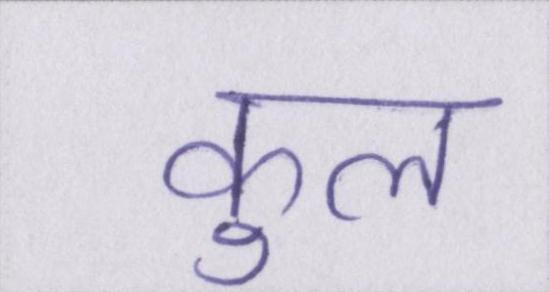 कुल